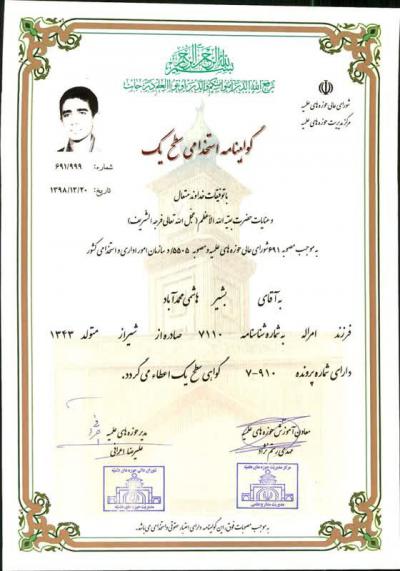 بسم الله الرحمن الرحیم
یرفع الله الذین آمنوا منکم و الذین اوتوا العلم درجات
شورای عالی حوزه های علمیه
مرکز مدیریت حوزه های علمیه
گواهینامه استخدامی سطح یک
شماره: ۶۹۱/۹۹۹
تاریخ: ۱۳۹۸/۱۲/۲۰
با توفیقات خداوند متعال
و عنایات حضرت بقیة الله الاعظم (عجل الله تعالی فرجه الشریف)
به موجب مصوبه ۶۹۱ شورای عالی حوزه های علمیه و مصوبه ۵۵۰۵/د سازمان امور اداری و استخدامی کشور
به آقای بشیر هاشمی محمدآباد
فرزند امراله به شماره شناسنامه ۷۱۱۰ صادره از شیراز متولد ۱۳۴۳
دارای شماره پرونده ۷-۹۱۰ گواهی سطح یک اعطاء می گردد.
معاون آموزش حوزه های علمیه
مهدی رستم نژاد
مدیر حوزه های علمیه
علیرضا اعرافی
مرکز مدیریت حوزه های علمیه
شورای عالی حوزه های علمیه
به موجب مصوبات فوق، این گواهینامه دارای اعتبار حقوقی و استخدامی می باشد.